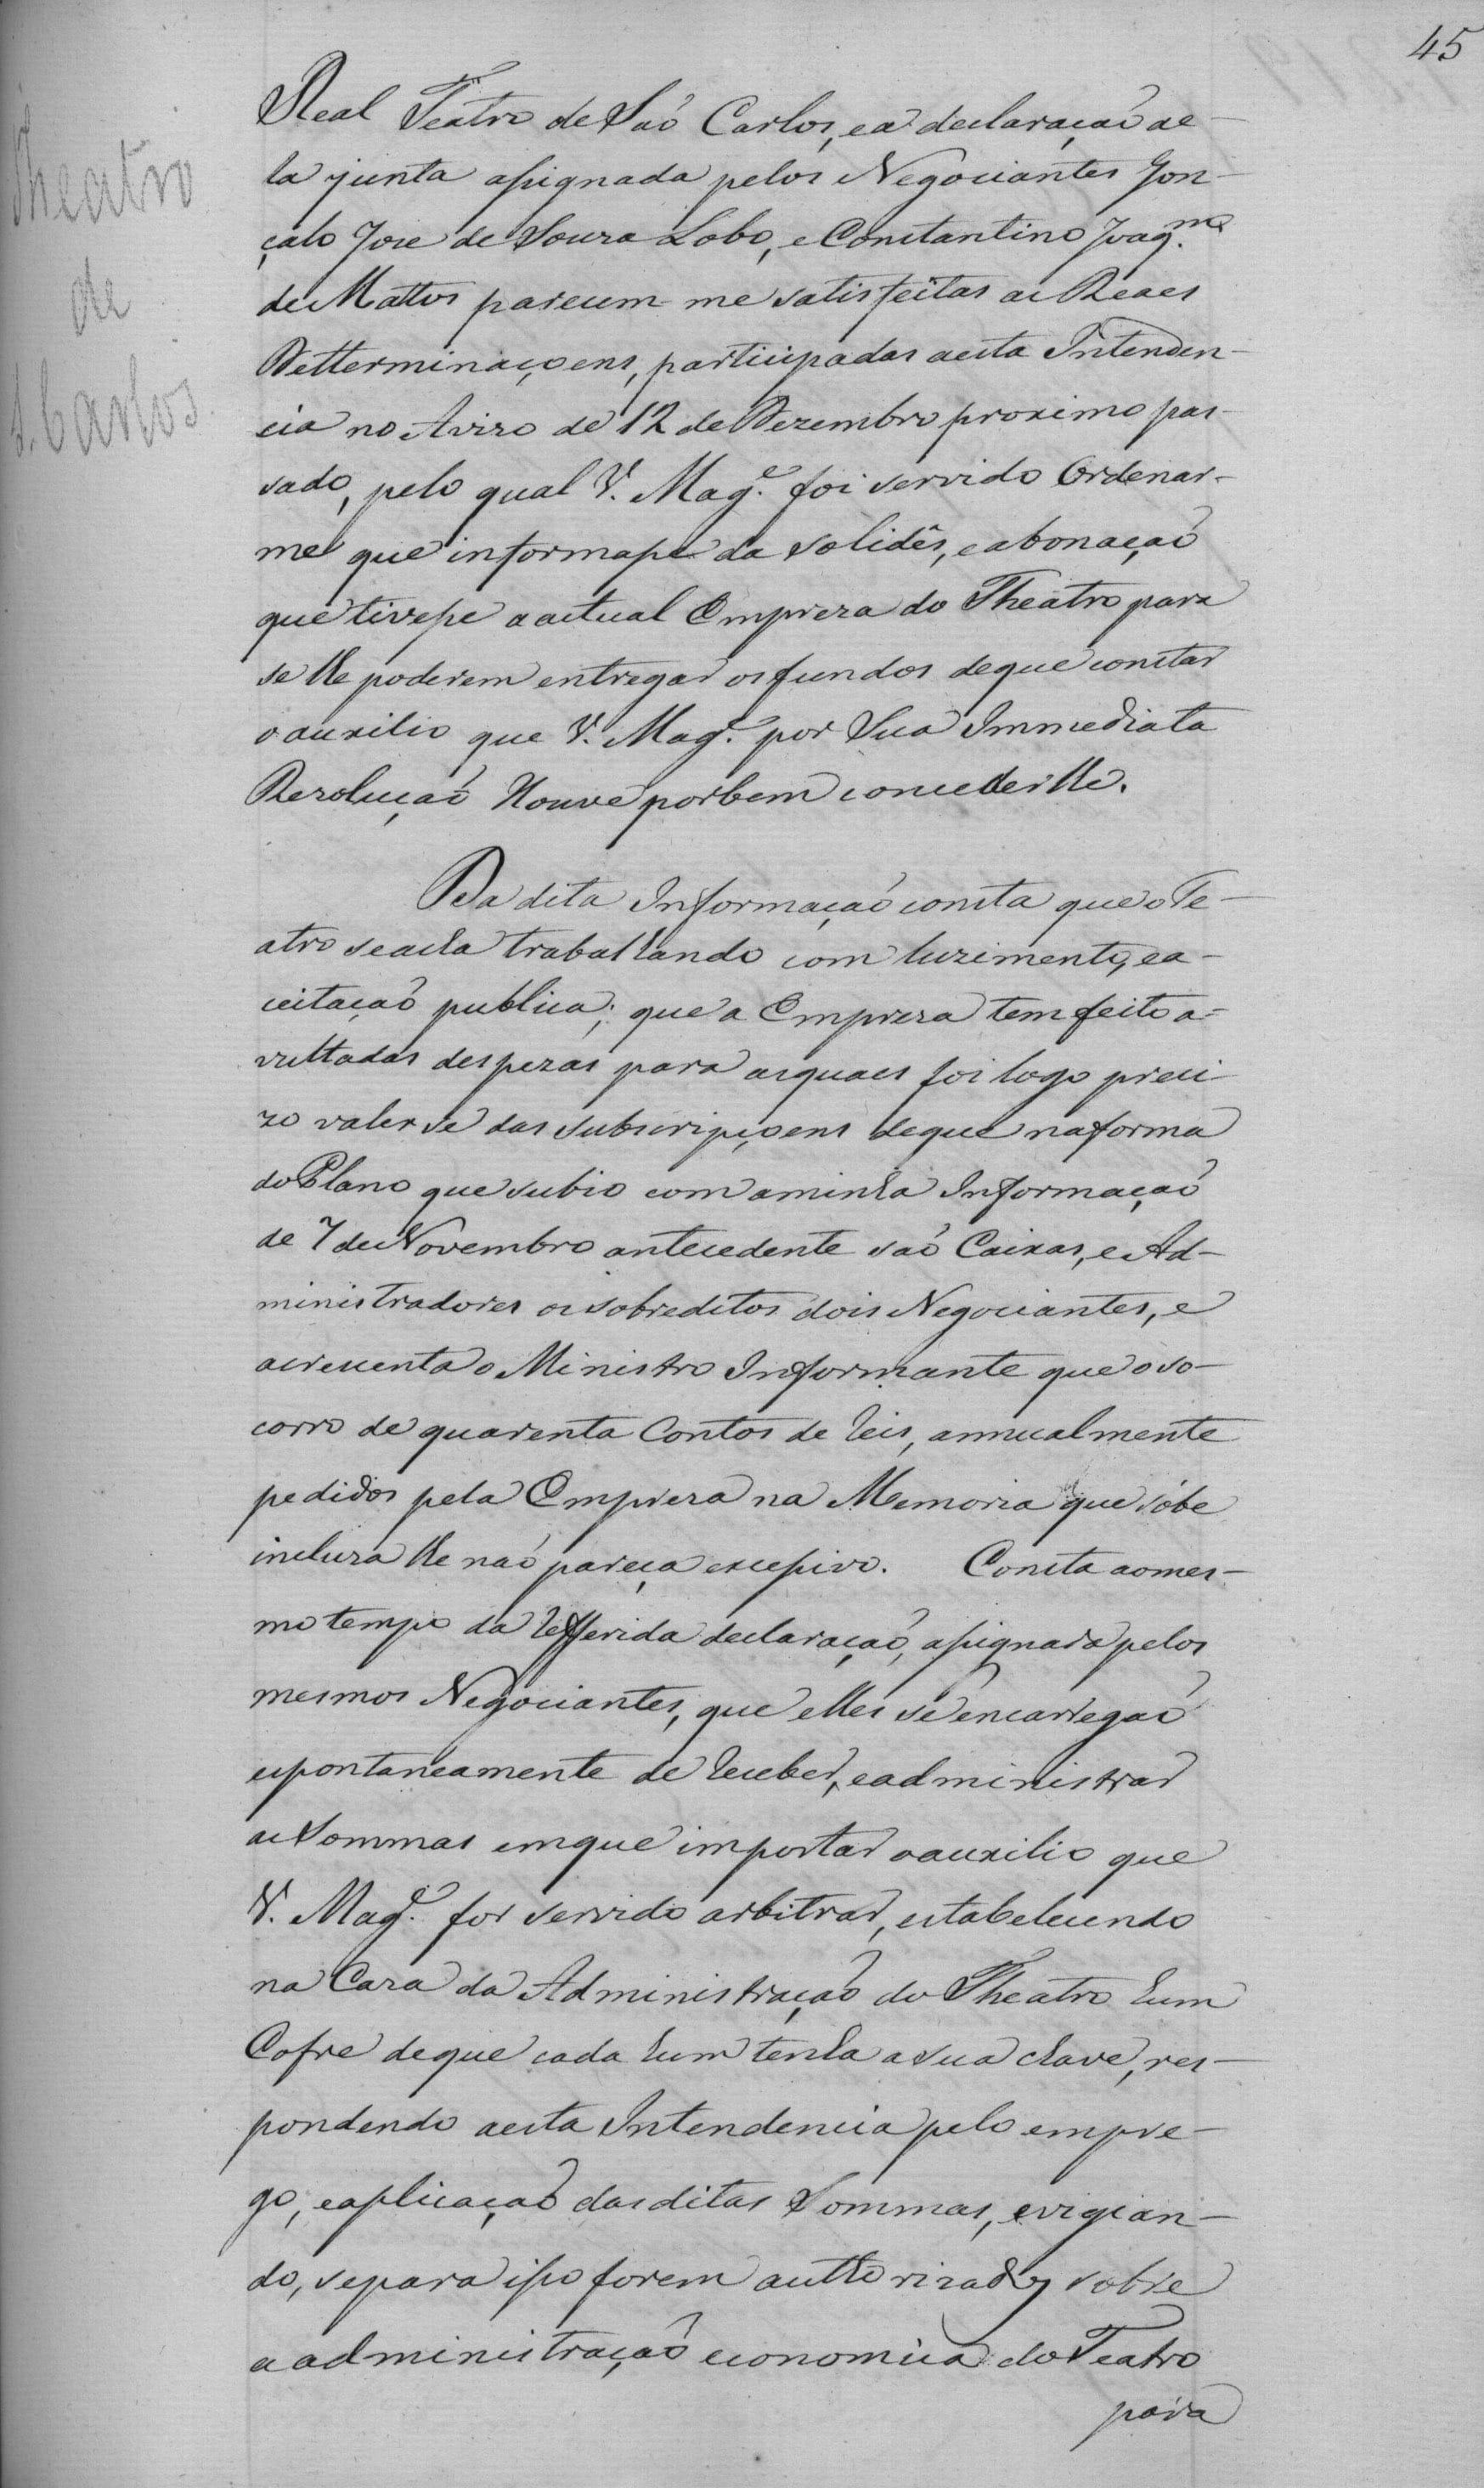 45
Theatro
de
S. Carlos.
Real Teatro de Saõ Carlos, e a declaraçaõ ae-
la junta assignada pelos Negociantes Gon-
çalo Jose de Souza Lobo, e Constantino Joaq.m
de Mattos parecem-me satisfeitas as Reaes
Detterminaçoens, participadas a esta Intenden-
cia no Avizo de 12 de Dezembro proximo pas-
sado, pelo qual V. Mag.e foi servido Ordenar-
me que informasse da solidês, e abonaçaõ
que tivesse a actual Empreza do Theatro para
se lhe poderem entregar os fundos de que constar
o auxilio que V. Mag.e por Sua Immediata
Rezoluçaõ Houve por bem concederlhe.
Da dita Informaçaõ consta que o Te-
atro se acha trabalhando com luzimento, e a-
ceitaçaõ publica; que a Empreza tem feito a-
vultadas despezas para as quaes foi logo preci-
zo valerse das subscripçoens de que na forma
do Plano que subio com a minha Informaçaõ
de 7 de Novembro antecedente saõ Caixas, e Ad-
ministradores os sobreditos dois Negociantes, e
acrescenta o Ministro Informante que o so-
corro de quarenta Contos de reis, annualmente
pedidos pela Empreza na Memoria que sóbe
incluza lhe naõ pareça excessivo. Consta ao mes-
mo tempo da refferida declaraçaõ, assignada pelos
mesmos Negociantes, que elles se encarregaõ
espontaneamente de receber, e administrar
as Sommas em que importar o auxilio que
V. Mag.e for servido arbitrar, estabelecendo
na Caza da Administraçaõ do Theatro hum
Cofre de que cada hum tenha a sua chave, res-
pondendo a esta Intendencia pelo empre-
go, e aplicaçaõ das ditas Sommas, e vigian-
do, se para isso forem authorizados sobre
a administraçaõ economica do Teatro
para